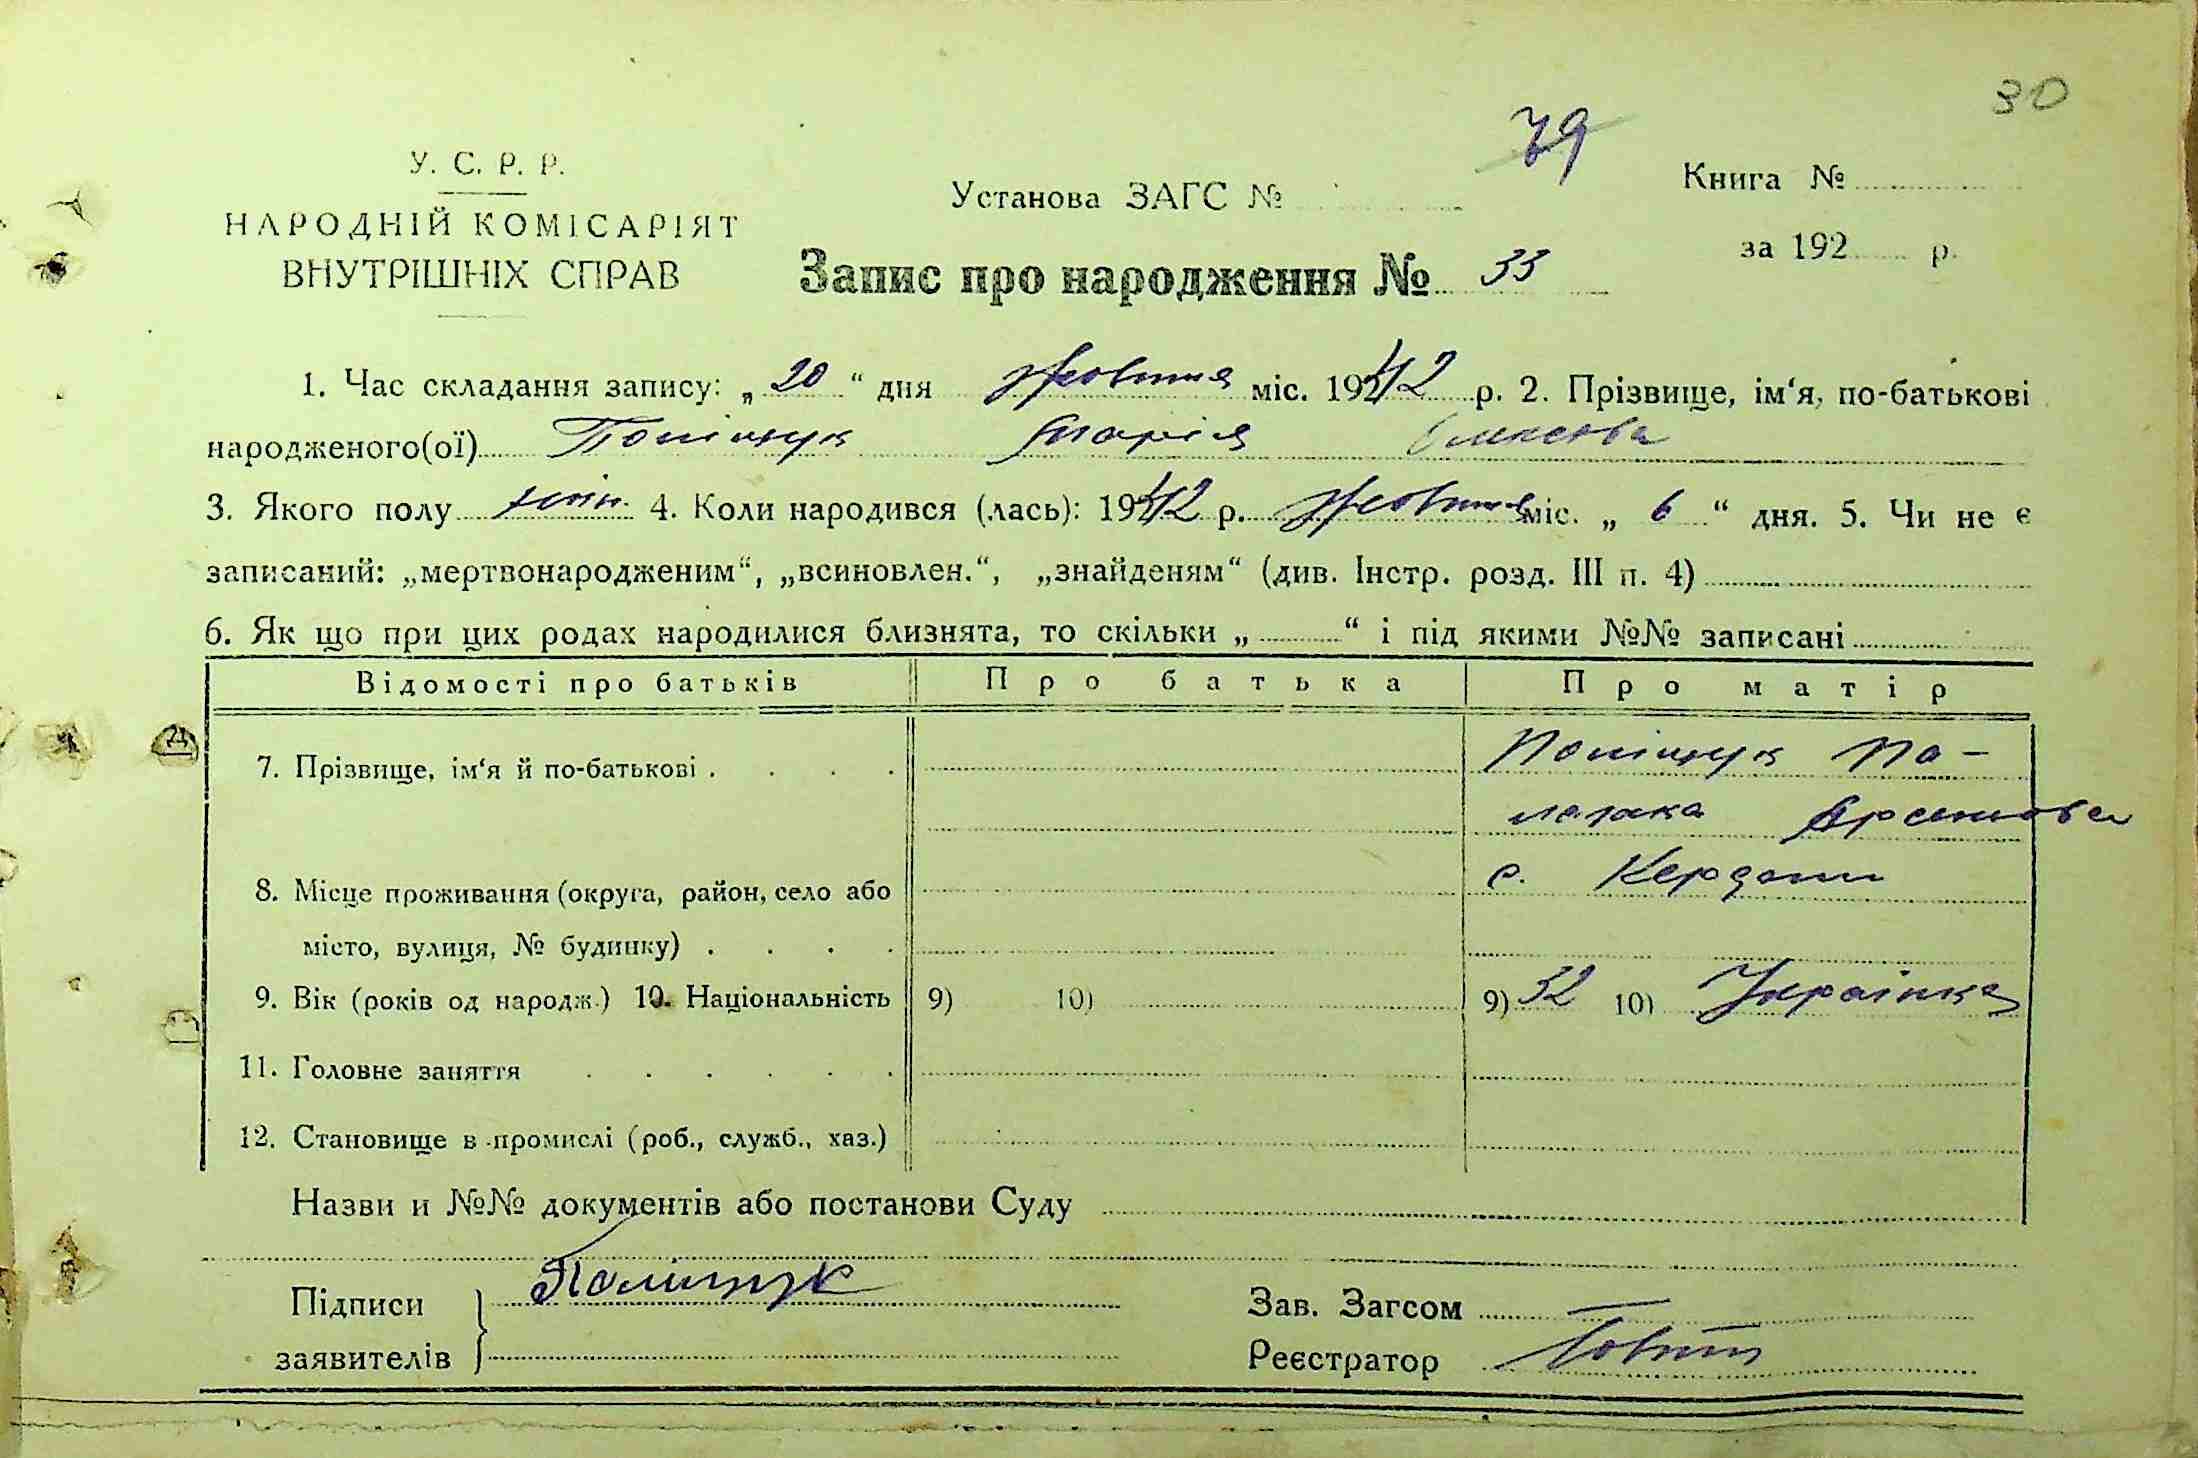 30
79
У. С. Р. Р.
НАРОДНІЙ КОМІСАРІЯТ
ВНУТРІШНІХ СПРАВ
Установа ЗАГС №
Книга №
за 192 р.
Запис про народження № 33
1. Час складання запису: „20“ дня Жовтня міс. 1942 р. 2. Прізвище, ім‘я, по-батькові
народженого(ої) Поліщук Марія
3. Якого полу жін. 4. Коли народився (лась): 1942 р. Жовтня міс. „ 6 “ дня. 5. Чи не є
записаний: „мертвонародженим“, „всиновлен.“, „знайденям“ (див. Інстр. розд. III п. 4)
6. Як що при цих родах народилися близнята, то скільки „ “ і під якими №№ записані
Відомості про батьків Про батька Про матір
7. Прізвище, ім‘я й по-батькові Поліщук Па-
лажка Арсенова
8. Місце проживання (округа, район, село або с. Кердани
місто, вулиця, № будинку)
9. Вік (років од народж.) 10. Національність 9) 10) 9) 32 10) Українка
11. Головне заняття
12. Становище в промислі (роб., служб., хаз.)
Назви и №№ документів або постанови Суду
Підписи Поліщук
заявителів
Зав. Загсом
Реєстратор